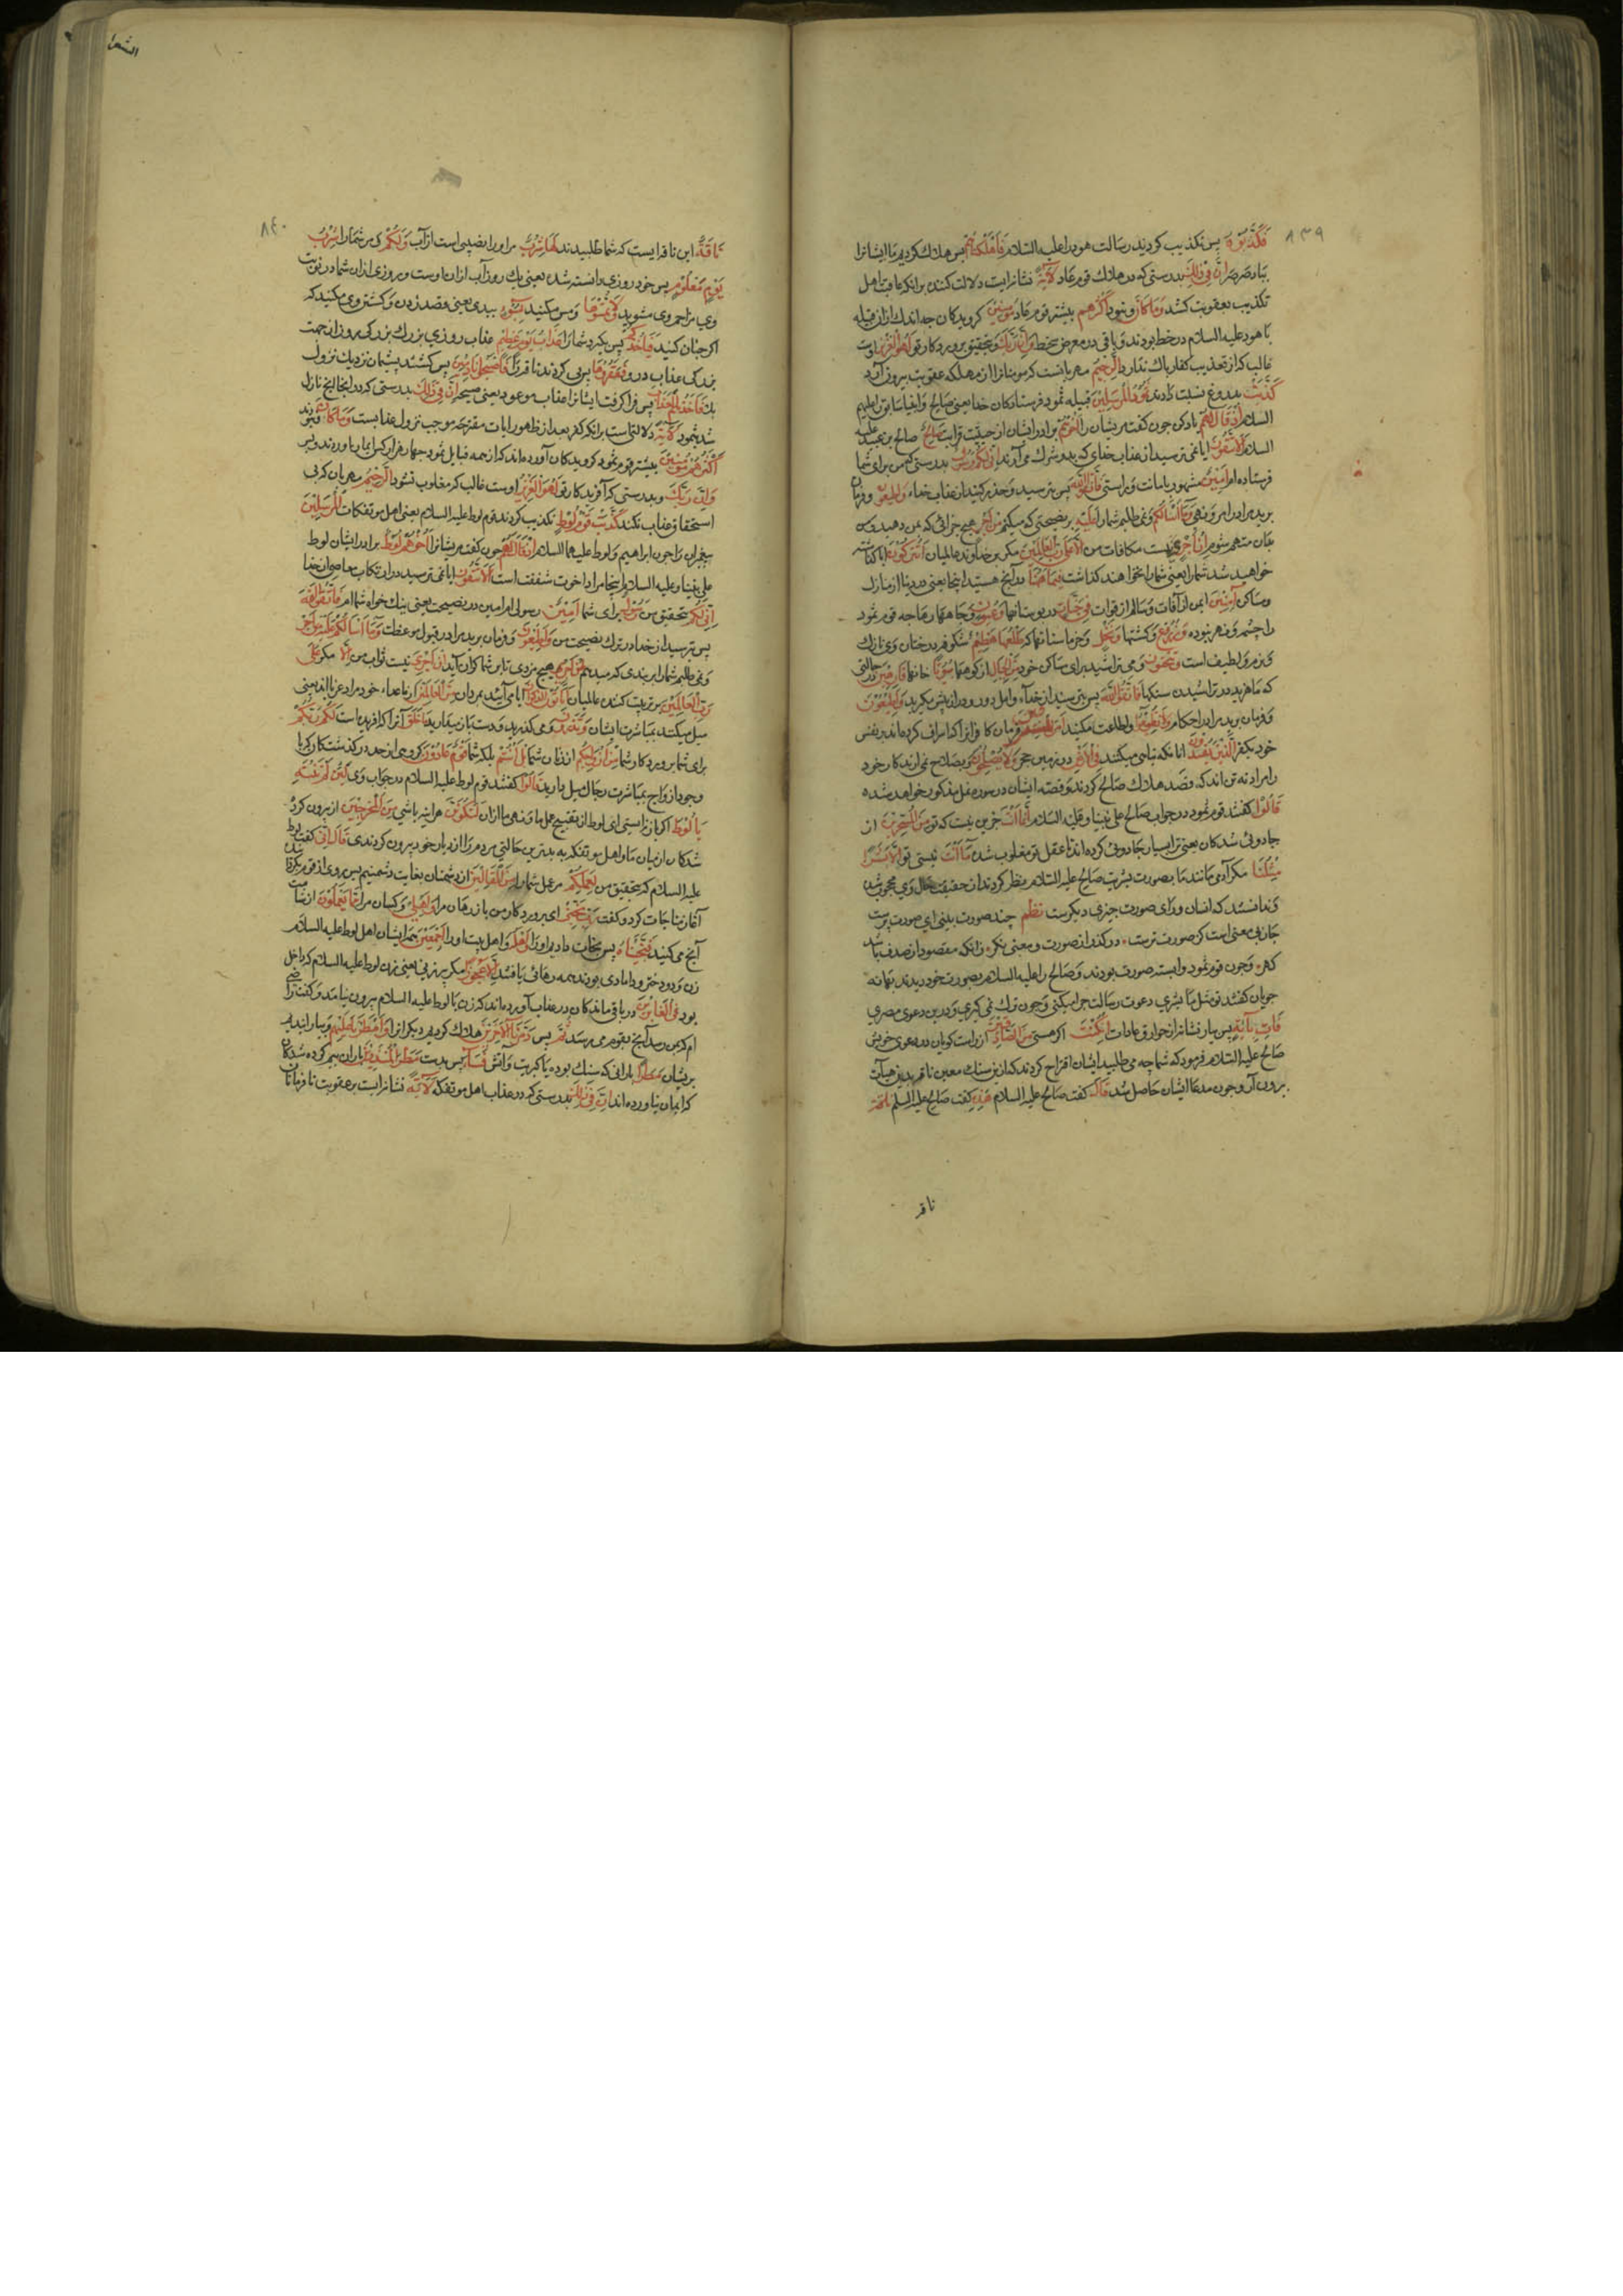 الشعرا
٨٣٩
فَكَذَّبُوهُ پس تکذیب کردند رسالت هود را علیه السلام فَأَهْلَكْنَاهُمْ پس هلاک کردیم ما ایشانرا
بباد صرصر إِنَّ فِي ذَلِكَ بدرستی که در هلاک قوم عاد لَآيَةً نشانرایست دلالت کننده برانکه عاقبت اهل
تکذیب بعقوبت کشد وَمَا كَانَ و نبود أَكْثَرُهُم بیشتر قوم عاد مُؤْمِنِينَ کرویدکان چه اندک از ان قبیله
با هود علیه السلام در خطه بودند و باقی در معرض سخط وَإِنَّ رَبَّكَ و بتحقیق پروردکار تو لَهُوَ الْعَزِيزُ اوست
غالب که از تعذیب کفار باک ندارد الرَّحِيمُ مهربانست که مومنانرا از مهلکه عقوبت بیرون آورد
كَذَّبَتْ بدروغ نسبت دادند ثَمُودُ الْمُرْسَلِينَ قبیله ثمود فرستادکان خدا یعنی صالح و انبیا سابق را علیهم
السلام إِذْ قَالَ لَهُمْ یاد کن چون کفت مریشان را أَخُوهُمْ برادر ایشان از حیثیت قرابت صَالِحٌ صالح بن عبید علیه
السلام أَلَا تَتَّقُونَ ایا نمی ترسید از عذاب خدای که بدو شرک می آرند إِنِّي لَكُمْ رَسُولٌ بدرستی که من برای شما
فرستاده ام أَمِينٌ مشهور بامانت و براستی فَاتَّقُوا اللَّهَ پس بترسید و حذر کنید از عذاب خداء وَأَطِيعُونِ و فرمان
برید مرا در امر و نهی وَمَا أَسْأَلُكُمْ و نمی طلبم شما را عَلَيْهِ بر نصیحتی که میکنم مِنْ أَجْرٍ هیچ جزائی که بمن دهید و
بدان متهم شوم إِنْ أَجْرِيَ نیست مکافات من إِلَّا عَلَى رَبِّ الْعَالَمِينَ مکر بر خداوند عالمیان أَتُتْرَكُونَ ایا کذاشته
خواهید شد شما را یعنی شما را نخواهند کذاشت فِي مَا هَاهُنَا در آنچه هستید اینجا یعنی در دنیا از منازل
و مساکن آمِنِينَ ایمن از آفات و سالم از فوات فِي جَنَّاتٍ در بوستانها وَعُيُونٍ و چاهها
را چشم و نهر نبوده وَزُرُوعٍ و کشتها وَنَخْلٍ و خرماستانها که طَلْعُهَا هَضِيمٌ شکوفه درختان وی نازک
و نرم و لطیف است وَتَنْحِتُونَ و می تراشید برای مساکن خود مِنَ الْجِبَالِ از کوهها بُيُوتًا خانها فَارِهِينَ در حالتی
که ماهرید در تراشیدن سنکها فَاتَّقُوا اللَّهَ پس بترسید از خداء وَأَطِيعُونِ
و فرمان برید مرا در احکام وَلَا تُطِيعُوا و اطاعت مکنید أَمْرَ الْمُسْرِفِينَ فرمان کافرانرا که اسراف کرده اند بر نفس
خود بکفر الَّذِينَ يُفْسِدُونَ انانکه تباهی میکنند فِي الْأَرْضِ در زمین حجر وَلَا يُصْلِحُونَ و بصلاح نمی ارند کار خود
را مراد نه تن اند که قصد هلاک صالح کردند و قصه ایشان در سوره نمل مذکور خواهد شد
قَالُوا کفتند قوم ثمود در جواب صالح علی نبینا و علیه السلام إِنَّمَا أَنْتَ جزین نیست که تو مِنَ الْمُسَحَّرِينَ از
جادوئی شدکان یعنی ترا بسیار جادوئی کرده اند تا عقل تو مغلوب شده مَا أَنْتَ نیستی تو إِلَّا بَشَرٌ
مِثْلُنَا مکر آدمی مانند ما بصورت بشریت صالح علیه السلام نظر کردند از حقیقت حال وی محجوب شدند
و ندانستند که انسان ورای صورت چیزی دیکرست نظم چند صورت بینی ای صورت پرست
جان بی معنی است کز صورت نرست در کذر از صورت و معنی نکر زانکه مقصود از صدف باشد
کهر و چون قوم ثمود وابسته صورت بودند و صالح را علیه السلام بصورت خود دیدند بهانه
جویان کفتند تو مثل ما بشری دعوت رسالت چرا میکنی و چون ترک نمی کیری و درین دعوی مصری
فَأْتِ بِآيَةٍ پس بیار نشانه از خوارق عادات إِنْ كُنْتَ اکر هستی مِنَ الصَّادِقِينَ از راست کویان در دعوی خویش
صالح علیه السلام فرمود که شما چه می طلبید ایشان اقتراح کردند که ازین سنک معین ناقه بدین هیأت
برون آر و چون مدعا ایشان حاصل شد قَالَ کفت صالح علیه السلام هَذِهِ
ناقه
٨٤٠
نَاقَةٌ این ناقه ایست که شما طلبیدند لَهَا شِرْبٌ مر او را نصیبی است از آب وَلَكُمْ و مر شما را شِرْبُ
يَوْمٍ مَعْلُومٍ پس خود روزی دانسته شده یعنی یک روز آب ازان اوست و روزی ازان شما در نوبت
وی مزاحم وی مشوید وَلَا تَمَسُّوهَا و مس مکنید بِسُوءٍ ببدی یعنی قصد زدن و کشتن وی مکنید که
اکر چنان کنید فَيَأْخُذَكُمْ پس بکیرد شما را عَذَابُ يَوْمٍ عَظِيمٍ عذاب روزی بزرک بزرکی روز از جهت
بزرکی عذاب درو فَعَقَرُوهَا پس پی کردند ناقه را فَأَصْبَحُوا نَادِمِينَ پس کشتند پشیمان نزدیک نزول
بلا فَأَخَذَهُمُ الْعَذَابُ پس فرا کرفت ایشانرا عذاب موعود یعنی صیحه إِنَّ فِي ذَلِكَ بدرستی که در انجا انچه نازل
شد بثمود لَآيَةً دلالتی است برانکه کفر بعد از ظهور ایات مقترحه موجب نزول عذابست وَمَا كَانَ و نبودند
أَكْثَرُهُمْ مُؤْمِنِينَ بیشتر قوم ثمود کرویدکان آورده اند که از همه قبایل ثمود چهار هزار کس ایمان آوردند و بس
وَإِنَّ رَبَّكَ و بدرستی که آفریدکار تو لَهُوَ الْعَزِيزُ اوست غالب که مغلوب نشود الرَّحِيمُ مهربان که بی
استحقاق عذاب نکند كَذَّبَتْ قَوْمُ لُوطٍ تکذیب کردند قوم لوط علیه السلام یعنی اهل موتفکات الْمُرْسَلِينَ
پیغمبران را چون ابراهیم و لوط علیهما السلام إِذْ قَالَ لَهُمْ چون کفت مریشانرا أَخُوهُمْ لُوطٌ برادر ایشان لوط
علی نبینا و علیه السلام اینجا مراد اخوت شفقت است أَلَا تَتَّقُونَ ایا نمی ترسید در ارتکاب معاصی از خدا
إِنِّي لَكُمْ بتحقیق من رَسُولٌ برای شما أَمِينٌ رسولی ام امین در نصیحت یعنی نیک خواه شماام فَاتَّقُوا اللَّهَ
پس بترسید از خدا در ترک نصیحت من وَأَطِيعُونِ و فرمان برید مرا در قبول موعظت وَمَا أَسْأَلُكُمْ عَلَيْهِ مِنْ أَجْرٍ
و نمی طلبم شما را بر پندی که میدهم هیچ مزدی تا بر شما کران آید إِنْ أَجْرِيَ نیست ثواب من إِلَّا مکر عَلَى
رَبِّ الْعَالَمِينَ بر تربیت کننده عالمیان أَتَأْتُونَ الذُّكْرَانَ ایا می آئید بمردان مِنَ الْعَالَمِينَ
میل میکنند بمباشرت ایشان وَتَذَرُونَ و می کذارید و دست باز میدارید مَا خَلَقَ آنرا که افریده است لَكُمْ رَبُّكُمْ
برای شما پروردکار شما مِنْ أَزْوَاجِكُمْ از زنان شما بَلْ أَنْتُمْ بلکه شما قَوْمٌ عَادُونَ کروهی از حد درکذشتکان که با
وجود ازواج بمباشرت رجال میل دارید قَالُوا کفتند قوم لوط علیه السلام در جواب وی لَئِنْ لَمْ تَنْتَهِ
يَا لُوطُ اکر باز نه ایستی ای لوط از تقبیح عمل ما و نهی ما ازان لَتَكُونَنَّ هرآینه باشی مِنَ الْمُخْرَجِينَ از بیرون کرده
شدکان از میان ما و اهل موتفکه به بدترین حالتی مردم را از دیار خود بیرون کردندی قَالَ إِنِّي کفت لوط
علیه السلام که بتحقیق من لِعَمَلِكُمْ مر عمل شما را مِنَ الْقَالِينَ از دشمنان بغایت دشمنیم پس روی از قوم بکردانید
آغاز مناجات کرد و کفت رَبِّ نَجِّنِي ای پروردکار من باز رهان مرا وَأَهْلِي و کسان مرا مِمَّا يَعْمَلُونَ از شامت
آنچه می کنید فَنَجَّيْنَاهُ پس نجات دادیم او را وَأَهْلَهُ و اهل بیت او را أَجْمَعِينَ همه ایشان اهل لوط علیه السلام
زن و دو دختر و دامادی بودند همه رهائی یافتند إِلَّا عَجُوزًا مکر پیرزنی یعنی زن لوط علیه السلام که داخل
بود فِي الْغَابِرِينَ در باقی ماندکان در عذاب آورده اند که زن با لوط علیه السلام بیرون نیامد و کفت راضی
ام که بمن رسد آنچه بقوم می رسد ثُمَّ پس دَمَّرْنَا الْآخَرِينَ هلاک کردیم دیکرانرا وَأَمْطَرْنَا عَلَيْهِمْ و ببارانیدیم
بریشان مَطَرًا بارانی که سنک بوده یا کبریت و آتش فَسَاءَ پس بدست مَطَرُ الْمُنْذَرِينَ باران بیم کرده شدکان
که ایمان نیاورده اند إِنَّ فِي ذَلِكَ بدرستی که در عذاب اهل موتفکه لَآيَةً نشانرایست بر عقوبت نافرمانان